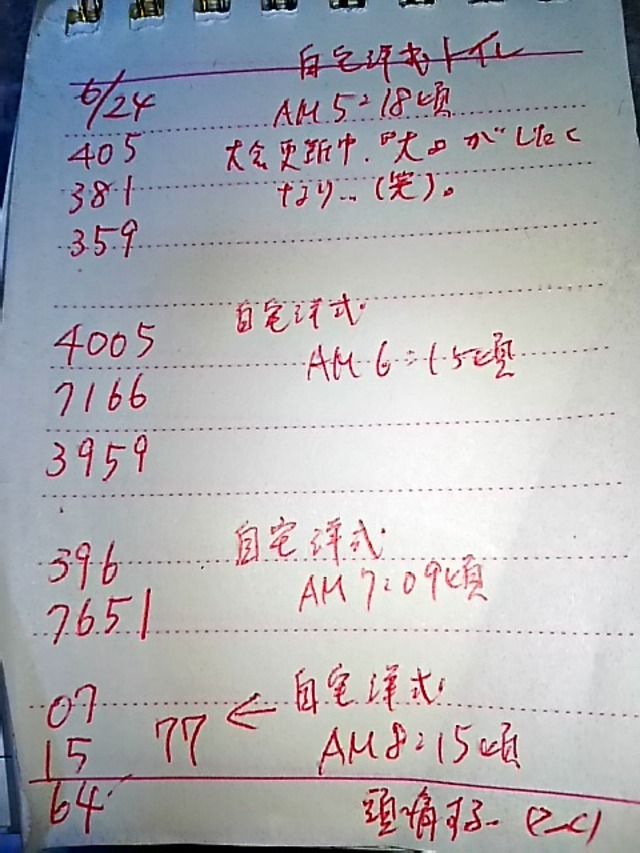 自宅洋式トイレ
6/24 AM5:18頃
405 大会更新中、『大』がしたく
381 なり…(笑)。
359
自宅洋式
4005 AM6:15頃
7166
3959
396 自宅洋式
7651 AM7:09頃
07 自宅洋式
15 77 ← AM8:15頃
64 頭痛する…